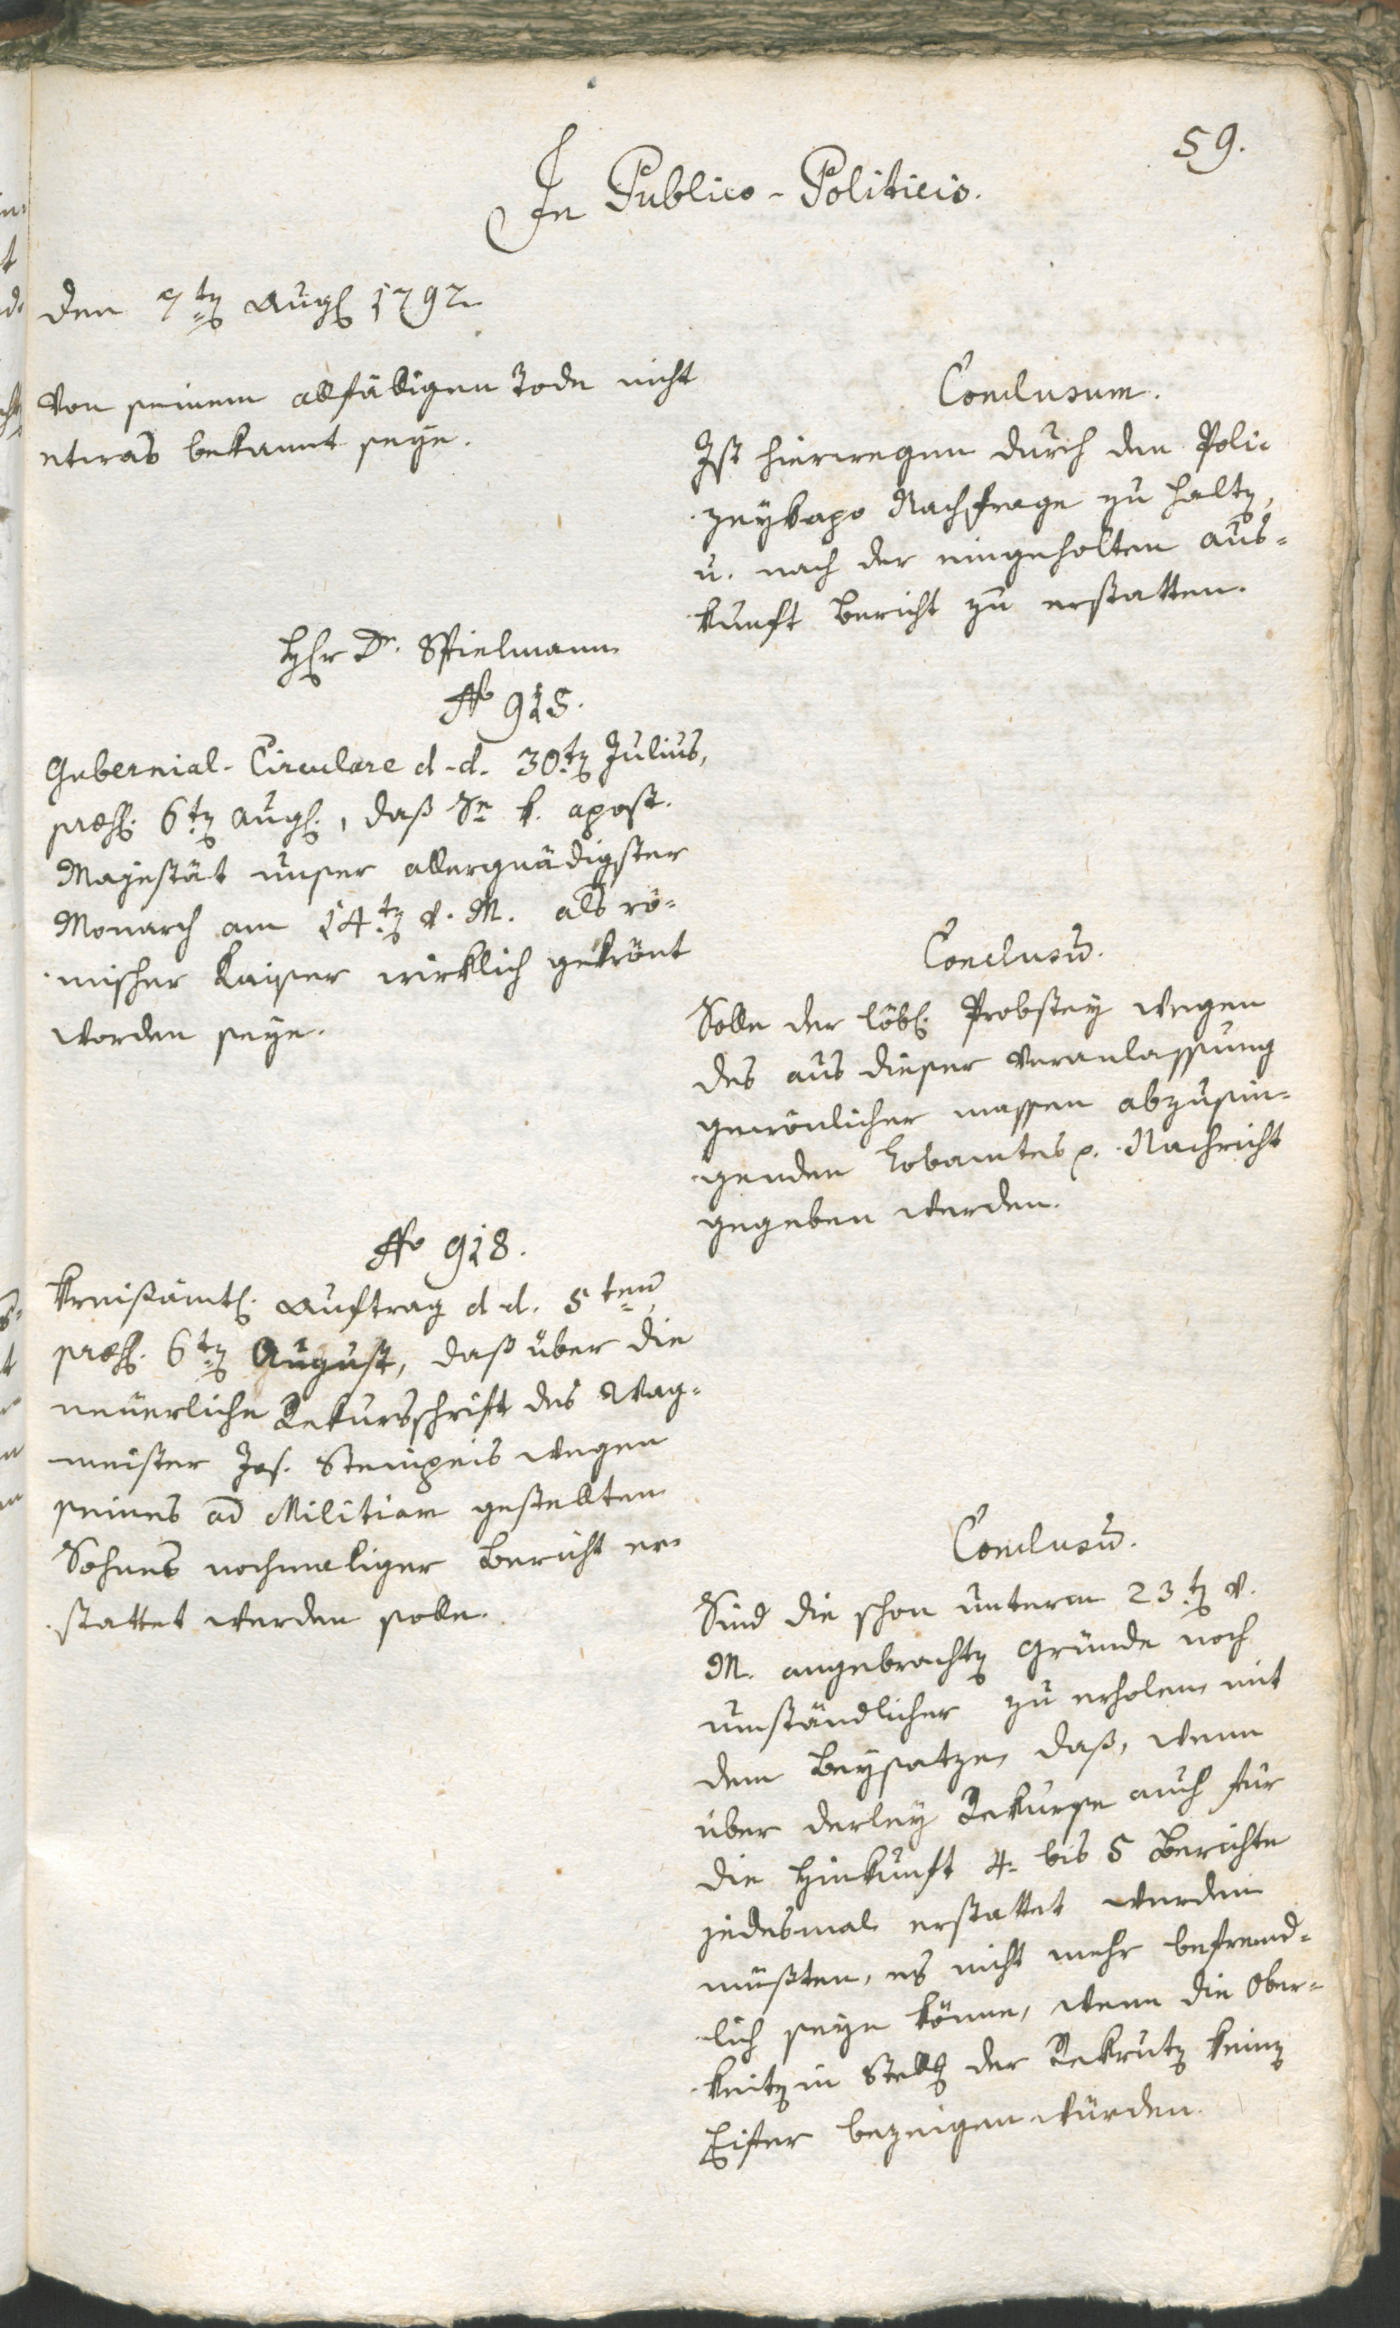 59.
In Publico-Politicis.
den 7ten Augl 1792
von seinem allfälligen Tode nicht
etwas bekannt seye.
Conclusum.
Ist hierwegen durch den Poli-
zeykapo Nachfrage zu halten,
u. nach der eingeholten Aus-
kunft Bericht zu erstatten.
Hhr Dr. Spielmann
No 915.
Gubernial-Circulare d-d. 30ten Julius,
præs. 6ten Aug., daß Se k. apost.
Majestät unser allergnädigster
Monarch am 14ten v. M. als rö-
mischer Kaiser wirklich gekrönt
worden seye.
Conclusum.
Solle der löbl. Probstey wegen
des aus dieser Veranlassung
gewönlicher massen abzusin-
genden Lobamtes p. Nachricht
gegeben werden.
No 918.
Kreisämtl. Auftrag d d. 5ten
præs. 6ten August, daß über die
neuerliche Rekursschrift des Wag-
meister Jos. Steinpeis wegen
seines ad Militiam gestellten
Sohnes nochmaliger Bericht er-
stattet werden solle.
Conclusum.
Sind die schon unterm 23ten v.
M. angebrachten Gründe noch
umständlicher zu erholen mit
dem Beysatze, daß, wenn
über derley Rekurse auch für
die Hinkunft 4- bis 5 Berichte
jedesmal erstattet werden
müßten, es nicht mehr befremd-
lich seye könne, wenn die Ober-
keiten in Stellg der Rekruten keinen
Eifer bezeigen würden.